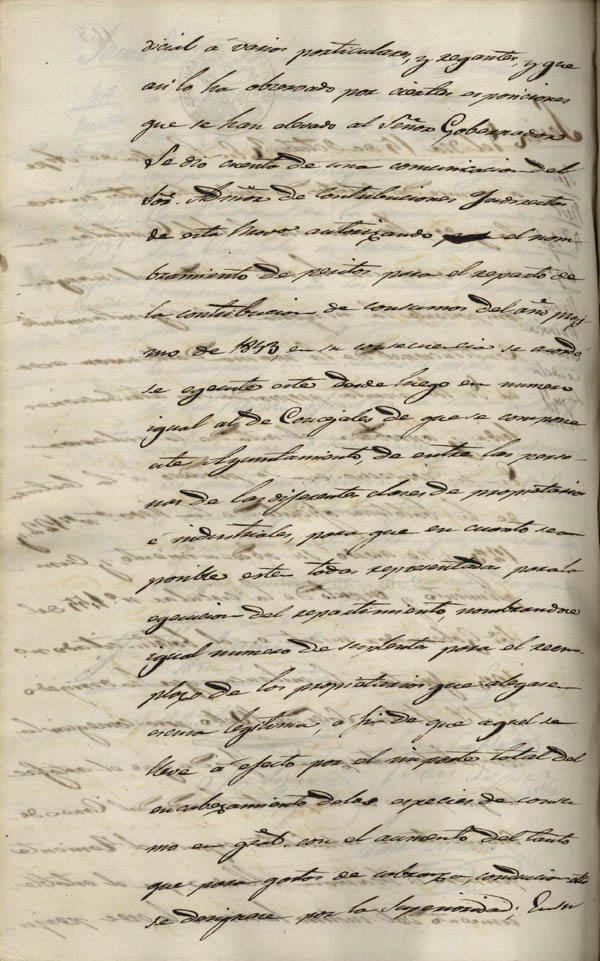 dicial á varios particulares, y regantes, y que
así lo ha observado por ciertas esposiciones
que se han elevado al Señor Gobernador
Se dió cuenta de una comunicacion del
Sor. Admor. de Contribuciones Indirectas
de esta Prova autorizando el nom-
bramiento de peritos para el reparto de
la contribucion de consumos del año proj-
simo de 1853, en su consecuencia se acordó
se egecute este desde luego en numero
igual al de Concejales de que se compone
este Ayuntamiento, de entre las perso-
nas de las diferentes clases de propietarios
é industriales, para que en cuanto sea
posible esten todas representadas para la
egecucion del repartimiento, nombrandose
igual numero de suplentes para el reem-
plazo de los propietarios que alegasen
escusa legitima, a fin de que aquel se
lleve á efecto por el importe total del
encabezamiento de las especies de consu-
mo en gral. con el aumento del tanto
que para gastos de cobranza, conduccion etc
se designase por la Superioridad; En su